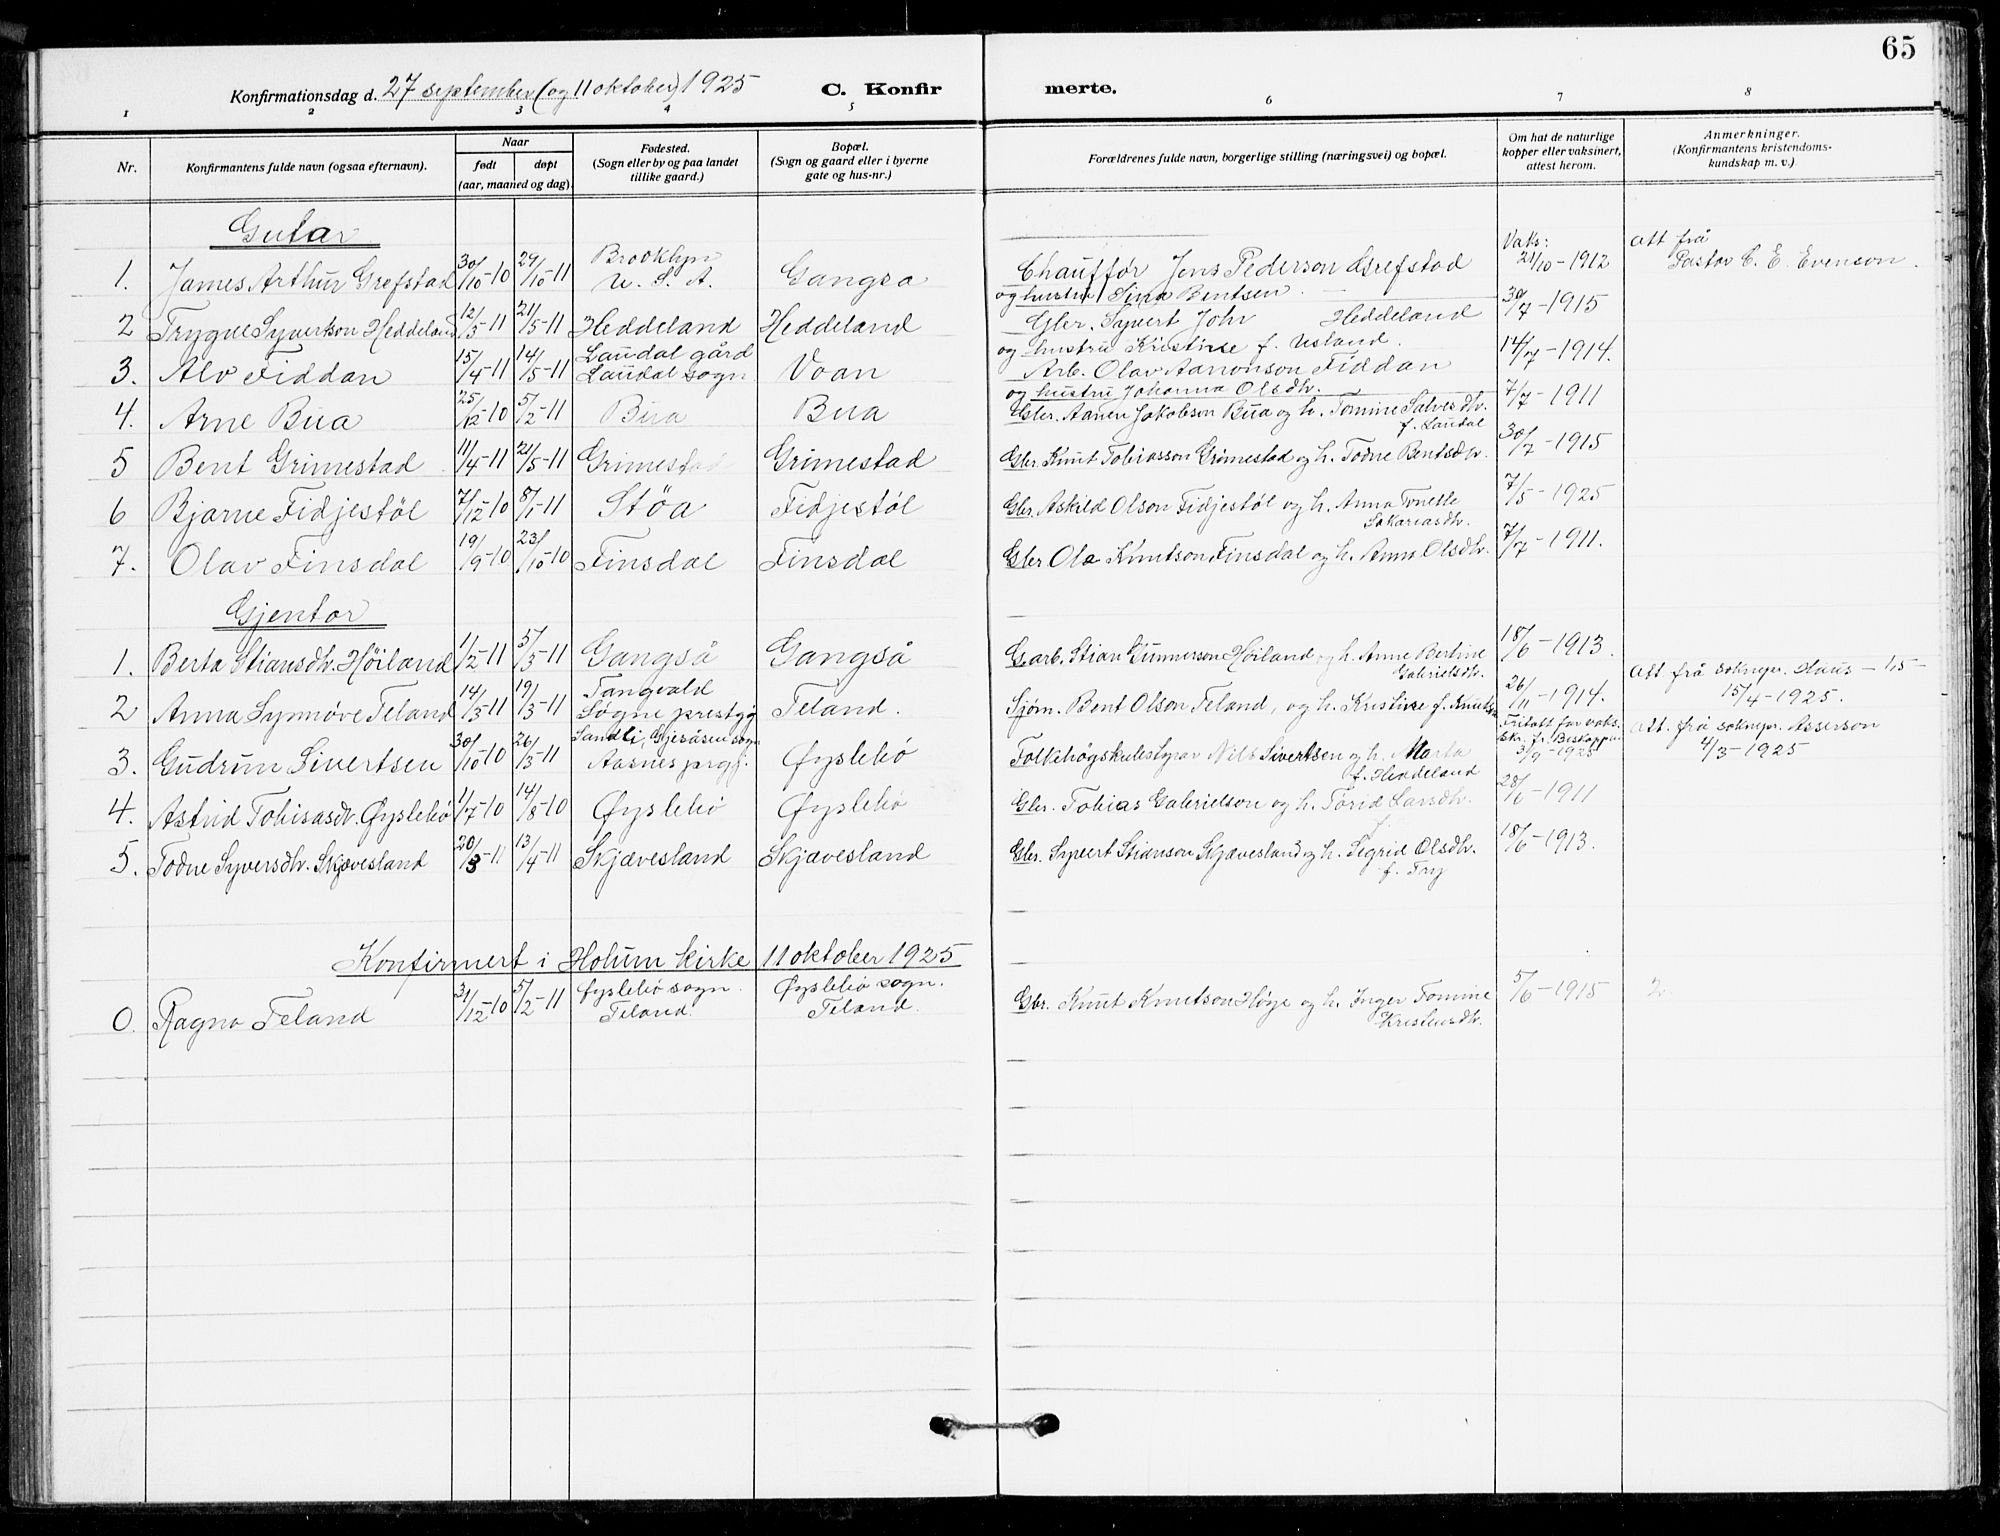 65
Konfirmationsdag d. 27 september (og 11 oktober) 1925 C. Konfir merte.
1 2 3 4 5 6 7 8
Nr. Konfirmantens fulde navn (ogsaa efternavn). Naar født døpt (aar, maaned og dag). Fødested. (Sogn eller by og paa landet tillike gaard.) Bopæl. (Sogn og gaard eller i byerne gate og hus-nr.) Forældrenes fulde navn, borgerlige stilling (næringsvei) og bopæl. Om hat de naturlige kopper eller vaksinert, attest herom. Anmerkninger. (Konfirmantens kristendoms-kundskap m. v.)
Gutar
1. James Arthur Grefstad 30/10-10 29/10-11 Brooklyn U. S. A. Gangsa Chauffør Jens Pederson Grefstad og hustru Sina Bentsen. Vaks: 21/10-1912 Att frå Pastor C. E. Evenson.
2 Trygve Syvertson Heddeland 12/3-11 21/5-11 Heddeland Heddeland Gbr. Syvert Johr Heddeland og hustru Kristine f. Usland. 30/7-1915
3. Alv Fiddan 15/4-11 14/5-11 Laudal gård Laudal sogn Voan Arb. Olav Aanonson Fiddan og hustru Johanna Olsdtr. 14/7-1914.
4. Arne Bua 25/12-10 5/2-11 Bua Bua Gbr. Aanen Jakobson Bua og h. Tomine Salvesdtr. f. Laudal 7/7-1911
5 Bent Grimestad 11/4-11 21/5-11 Grimestad Grimestad Gbr. Knut Tobiasson Grimestad og h. Todne Bentsdtr. 30/7-1915
6 Bjarne Fidjestøl 7/12-10 8/1-11 Støa Fidjestøl Gbr. Askild Olson Fidjestøl og h. Anna Tonette Sakariasdtr. 7/5-1925
7. Olav Finsdal 19/9-10 23/10-10 Finsdal Finsdal Gbr Ola Knutson Finsdal og h. Anna Olsdtr. 7/7-1911.
Gjentor
1. Berta Stiansdtr. Høiland 1/2-11 5/3-11 Gangså Gangså G.arb. Stian Gunnerson Høiland og h. Anne Bertine Gabrielsdtr. 18/6-1913.
2 Anna Synnøve Teland 14/3-11 19/3-11 Tangvald Søgne prestgj Teland. Sjøm. Bent Olson Teland, og h. Kristine f. Knuts 26/11-1914. Att frå sokнepr. Haus - 1,5- 15/4-1925.
3. Gudrun Sivertsen 30/10-10 26/3-11 Sandli, Gjesåsen sogn Aasnes prgj. Øyslebø Folkehøgskulestyrar Nils Sivertsen og h. Marta f. Heddeland Fritatt for vaks. 3/9-1925 Att. frå soknepr. Asserson 4/3-1925
4. Astrid Tobiasdtr. Øyslebø 1/7-10 14/8-10 Øyslebø Øyslebø Gbr. Tobias Gabrielson og h. Torid Larsdtr. 28/6-1911
5. Todne Syversdtr. Skjævesland 20/3-11 13/4-11 Skjævesland Skjævesland Gbr. Syvert Stianson Skjævesland og h. Sigrid Olsdtr. f. Try 18/6-1913.
Konfirmert i Holum kirke 11 oktober 1925
0. Ragna Teland 31/12-10 5/2-11 Øyslebø sogn. Teland. Øyslebø sogn. Teland. Gbr. Knut Knutson Høye og h. Inger Tomine Kristensdtr. 5/6-1915 2.